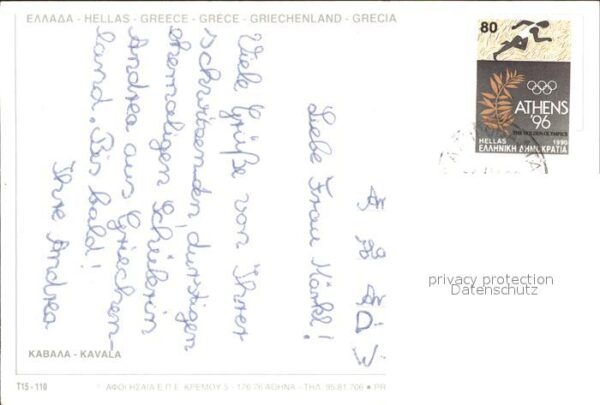 ΕΛΛΑΔΑ - HELLAS - GREECE - GRÈCE - GRIECHENLAND - GRECIA
80
ATHENS
'96
THE GOLDEN OLYMPICS
HELLAS 1990
ΕΛΛΗΝΙΚΗ ΔΗΜΟΚΡΑΤΙΑ
Liebe Frau Märkl!
Viele Grüße von Ihrer
schwitzenden, durstigen
ehemaligen Schülerin
Andrea aus Griechen-
land. Bis bald!
Ihre Andrea
privacy protection
Datenschutz
ΚΑΒΑΛΑ - KAVALA
T15 - 110
ΑΦΟΙ ΗΣΑΙΑ Ε.Π.Ε. ΚΡΕΜΟΥ 5 - 176 76 ΑΘΗΝΑ - ΤΗΛ. 95.81.706 • PR